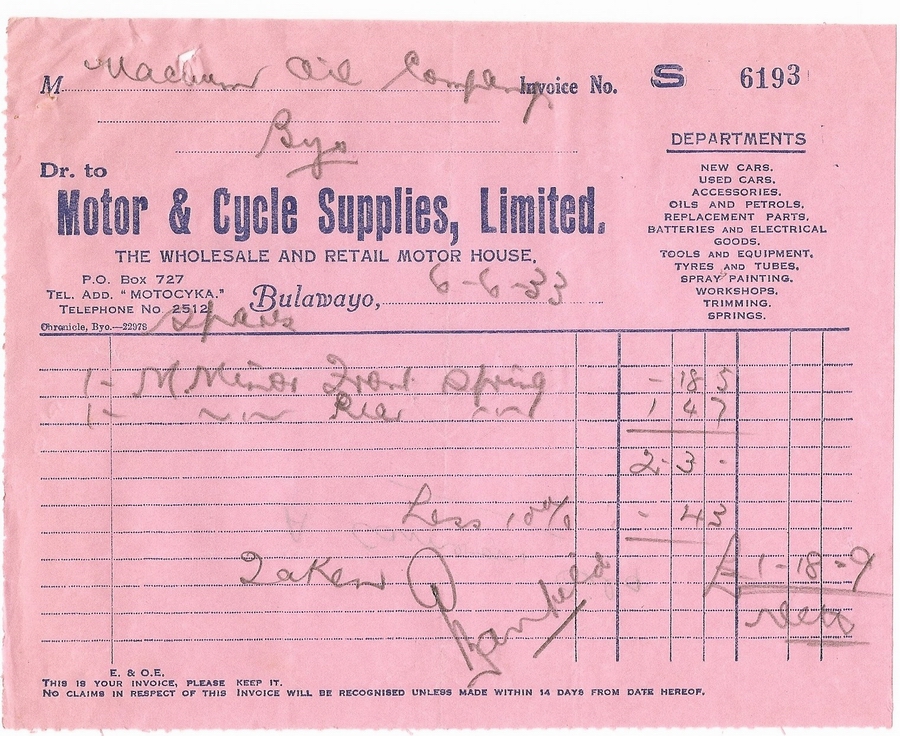 M Vacuum Oil Company Invoice No. S 6193
Byo
Dr. to
Motor & Cycle Supplies, Limited.
THE WHOLESALE AND RETAIL MOTOR HOUSE.
P.O. Box 727
TEL. ADD. "MOTOCYKA."
TELEPHONE No 2512
Bulawayo, 6-6-33
Chronicle, Byo.—22978
Spares
DEPARTMENTS
NEW CARS.
USED CARS.
ACCESSORIES.
OILS AND PETROLS.
REPLACEMENT PARTS.
BATTERIES AND ELECTRICAL
GOODS.
TOOLS AND EQUIPMENT.
TYRES AND TUBES.
SPRAY PAINTING.
WORKSHOPS.
TRIMMING.
SPRINGS.
1- M Minor Front Spring - 18 5
1- Rear 1 4 7
2 - 3 -
Less 10% - 4 3
Taken £1-18-9
Banfield nett
E. & O.E.
THIS IS YOUR INVOICE, PLEASE KEEP IT.
NO CLAIMS IN RESPECT OF THIS INVOICE WILL BE RECOGNISED UNLESS MADE WITHIN 14 DAYS FROM DATE HEREOF.